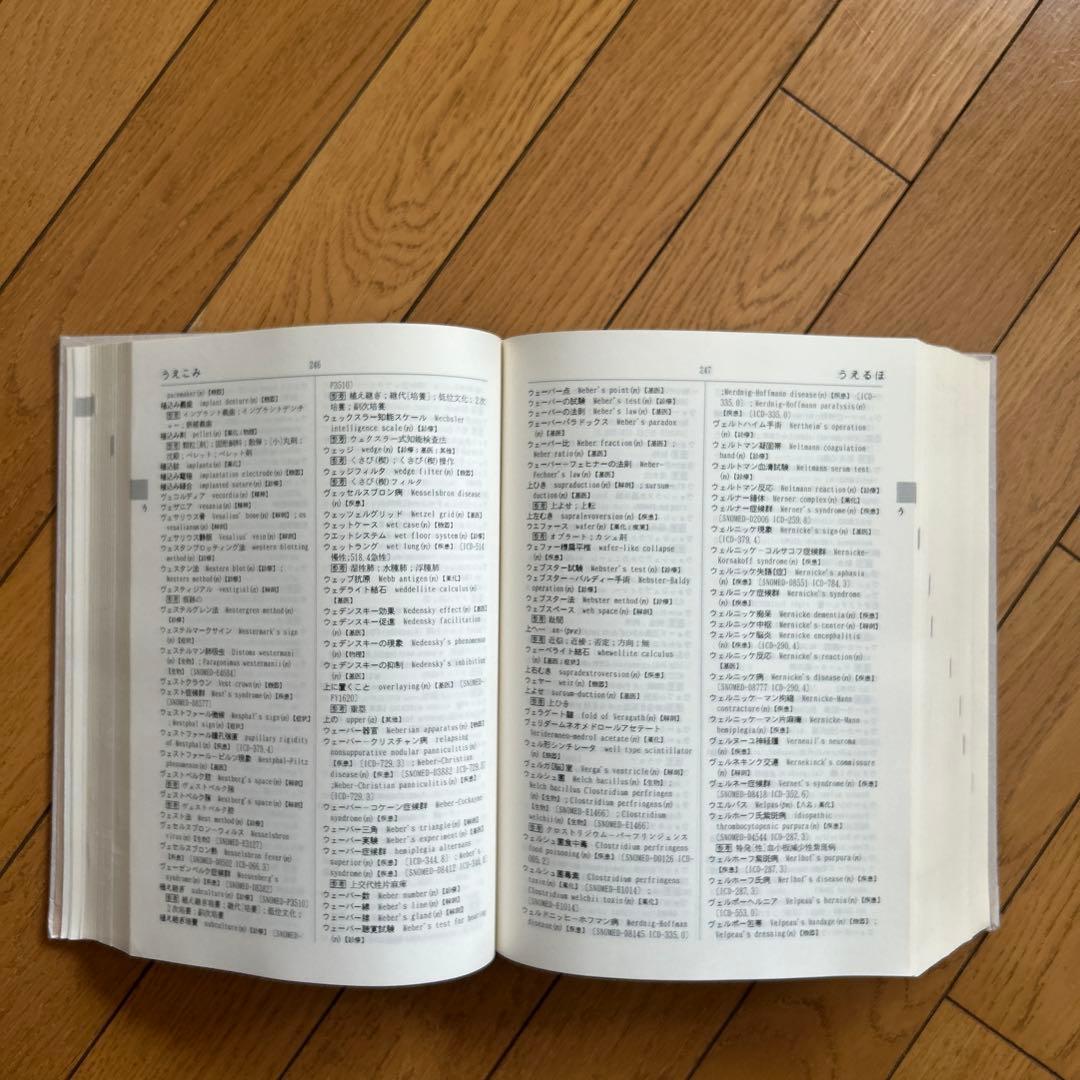 うえこみ
246
pacemaker(n)【機器】
植込み義歯 implant denture(n)【機器】
同義 インプラント義歯;インプラントデンチ
ャー;嵌植義歯
植込み剤 pellet(n)【薬化;物理】
植込錠 implants(n)【薬化】
植込み電極 implantation electrode(n)【機器】
植込み縫合 implanted suture(n)【診療】
ヴェコルディア vecordia(n)【精神】
ヴェザニア vesania(n)【精神】
ヴェサリウス骨 Vesalius' bone(n)【解剖】;os
vesalianum(n)【解剖】
ヴェサリウス静脈 Vesalius' vein(n)【解剖】
ウェスタンブロッティング法 western blotting
method(n)【診療】
ウェスタン法 Western blot(n)【診療】;
Western method(n)【診療】
ヴェスティジアル vestigial(n)【解剖】
同義 痕跡の
ウェステルグレン法 Westergren method(n)
【診療】
ウェステルマークサイン Westermark's sign
(n)【症状】
ウェステルマン肺吸虫 Distoma westermani
(n)【生物】;Paragonimus westermanii(n)
【生物】[SNOMED-E4684]
ヴェストクラウン Vest crown(n)【機器】
ウェスト症候群 West's syndrome(n)【疾患】
ウェストファール徴候 Westphal's sign(n)【症状】
;Westphal sign(n)【症状】
ウェストファール瞳孔強直 pupillary rigidity
of Westphal(n)【疾患】[ICD-379.4]
ウェストファール-ピルツ現象 Westphal-Piltz
phenomenon(n)【基医】
ウェストベルク腔 Westberg's space(n)【解剖】
同義 ヴェストベルク隙
ヴェストベルク隙 Westberg's space(n)【解剖】
同義 ヴェストベルク腔
ウェスト法 West method(n)【診療】
ウェセルスブロン・ウィルス Wesselsbron
virus(n)【生物】[SNOMED-E3127]
ウェセルスブロン熱 Wesselsbron fever(n)
【疾患】[SNOMED-D0502 ICD-066.3]
植え継ぎ subculture(n)【診療】[SNOMED-P3510]
同義 植え継ぎ培養;継代[培養];低位文化;
2次培養;副次培養
植え継ぎ培養 subculture(n)【診療】[SNOMED-
P3510]
同義 植え継ぎ;継代[培養];低位文化;2次
培養;副次培養
ウェックスラー知能スケール Wechsler
intelligence scale(n)【診療】
同義 ウェクスラー式知能検査法
ウェッジ wedge(n)【診療;基医;其他】
同義 くさび(楔);くさび(楔)操作
ウェッジフィルタ wedge filter(n)【機器】
同義 くさび(楔)フィルタ
ヴェッセルスブロン病 Wesselsbron disease
(n)【疾患】
ウェッツェルグリッド Wetzel grid(n)【基医】
ウェットケース wet case(n)【機器】
ウエットシステム wet floor system(n)【診療】
ウェットラング wet lung(n)【疾患】[ICD-514
慢性;518.4急性]
同義 湿性肺;水腫肺;浮腫肺
ウェッブ抗原 Webb antigen(n)【薬化】
ウェデライト結石 weddellite calculus(n)
【基医】
ウェデンスキー効果 Wedensky effect(n)【基医】
ウェデンスキー促進 Wedensky facilitation
(n)【基医】
ウェデンスキーの現象 Wedensky's phenomenon
(n)【物理】
ウェデンスキーの抑制 Wedensky's inhibition
(n)【基医】
上に置くこと overlaying(n)【基医】[SNOMED-
FY1620]
同義 重層
上の upper(a)【其他】
ウェーバー器官 Weberian apparatus(n)【物医】
ウェーバー-クリスチャン病 relapsing
nonsuppurative nodular panniculitis(n)
【疾患】[ICD-729.3];Weber-Christian
disease(n)【疾患】[SNOMED-D3882 ICD-729.3]
;Weber-Christian panniculitis(n)【疾患】
[ICD-729.3]
ウェーバー-コケーン症候群 Weber-Cockayne
syndrome(n)【疾患】
ウェーバー三角 Weber's triangle(n)【解剖】
ウェーバー実験 Weber's experiment(n)【基医】
ウェーバー症候群 hemiplegia alternans
superior(n)【疾患】[ICD-344.8];Weber's
syndrome(n)【疾患】[SNOMED-D8412 ICD-344.8]
同義 上交代性片麻痺
ウェーバー数 Weber number(n)【診療】
ウェーバー線 Weber's line(n)【解剖】
ウェーバー腺 Weber's gland(n)【解剖】
ウェーバー聴覚試験 Weber's test for hearing
(n)【診療】
247
うえるほ
ウェーバー点 Weber's point(n)【基医】
ウェーバーの試験 Weber's test(n)【診療】
ウェーバーの法則 Weber's law(n)【基医】
ウェーバーパラドックス Weber's paradox
(n)【基医】
ウェーバー比 Weber fraction(n)【基医】;
Weber ratio(n)【基医】
ウェーバー-フェヒナーの法則 Weber-
Fechner's law(n)【基医】
上ひき supraduction(n)【解剖】;sursum-
duction(n)【基医】
同義 上よせ;上転
上左むき supralevoversion(n)【疾患】
ウエファース wafer(n)【薬化;産業】
同義 オブラート;カシェ剤
ウェファー様扁平椎 wafer-like collapse
(n)【疾患】
ウェブスター試験 Webster's test(n)【診療】
ウェブスター-バルディー手術 Webster-Baldy
operation(n)【診療】
ウェブスター法 Webster method(n)【診療】
ウェブスペース web space(n)【解剖】
同義 趾間
上へ— an-(pre)
同義 近似;近接;否定;方向;無
ウーベライト結石 whewellite calculus
(n)【基医;症状】
上右むき supradextroversion(n)【疾患】
ウェヤー weir(n)【機器】
上よせ sursum-duction(n)【基医】
同義 上ひき
ヴェラグート皺 fold of Veraguth(n)【解剖】
ヴェリダームネオメドロールアセテート
Veriderm-medrol acetate(n)【薬化】
ウェル形シンチレータ well type scintillator
(n)【機器】
ヴェルガ[脳]室 Verga's ventricle(n)【解剖】
ウェルシュ菌 Welch bacillus(n)【生物】;
Welch bacillus Clostridium perfringens
(n)【生物】;Clostridium perfringens(n)
【生物】[SNOMED-E1466];Clostridium
welchii(n)【生物】[SNOMED-E1466]
同義 クロストリジウム-パーフリンジェンス
ウェルシュ菌食中毒 Clostridium perfringens
food poisoning(n)【疾患】[SNOMED-D0126 ICD-
005.2]
ウェルシュ菌毒素 Clostridium perfringens
toxin(n)【薬化】[SNOMED-E1014];
Clostridium welchii toxin(n)【薬化】
[SNOMED-E1014]
ウェルドニッヒ-ホフマン病 Werdnig-Hoffmann
disease(n)【疾患】[SNOMED-D8145 ICD-335.0]
;Werdnig-Hoffmann disease(n)【疾患】[ICD-
335.0];Werdnig-Hoffmann paralysis(n)
【疾患】[ICD-335.0]
ヴェルトハイム手術 Wertheim's operation
(n)【診療】
ヴェルトマン凝固帯 Weltmann coagulation
band(n)【診療】
ヴェルトマン血清試験 Weltmann serum test
(n)【診療】
ヴェルトマン反応 Weltmann reaction(n)【診療】
ヴェルナー錯体 Werner complex(n)【薬化】
ヴェルナー症候群 Werner's syndrome(n)【疾患】
[SNOMED-D2006 ICD-259.8]
ヴェルニッケ現象 Wernicke's sign(n)【基医】
[ICD-379.4]
ヴェルニッケ-コルサコフ症候群 Wernicke-
Korsakoff syndrome(n)【疾患】
ヴェルニッケ失語[症] Wernicke's aphasia
(n)【疾患】[SNOMED-D8551 ICD-784.3]
ヴェルニッケ症候群 Wernicke's syndrome
(n)【疾患】
ヴェルニッケ痴呆 Wernicke dementia(n)【疾患】
ヴェルニッケ中枢 Wernicke's center(n)【解剖】
ヴェルニッケ脳炎 Wernicke encephalitis
(n)【疾患】
ヴェルニッケ反応 Wernicke's reaction(n)
【基医】
ヴェルニッケ病 Wernicke's disease(n)【疾患】
[SNOMED-D8777 ICD-290.4]
ヴェルニッケ-マン拘縮 Wernicke-Mann
contracture(n)【疾患】
ヴェルニッケ-マン片麻痺 Wernicke-Mann
hemiplegia(n)【疾患】
ヴェルヌーユ神経腫 Verneuil's neuroma
(n)【疾患】
ヴェルネキンク交連 Wernekinck's commissure
(n)【解剖】
ヴェルネー症候群 Vernet's syndrome(n)【疾患】
[SNOMED-D8418 ICD-352.6]
ウエルパス Welpas(n)【人名;薬化】
ウェルホーフ氏紫斑病 idiopathic
thrombocytopenic purpura(n)【疾患】
[SNOMED-D4544 ICD-287.3]
同義 特発[性]血小板減少性紫斑病
ウェルホーフ紫斑病 Werlhof's purpura(n)
【疾患】[ICD-287.3]
ヴェルホーフ氏病 Werlhof's disease(n)
【疾患】[ICD-287.3]
ヴェルポーヘルニア Velpeau's hernia(n)【疾患】
[ICD-553.0]
ヴェルポー包帯 Velpeau's bandage(n)【機器】;
Velpeau's dressing(n)【機器】
う
う